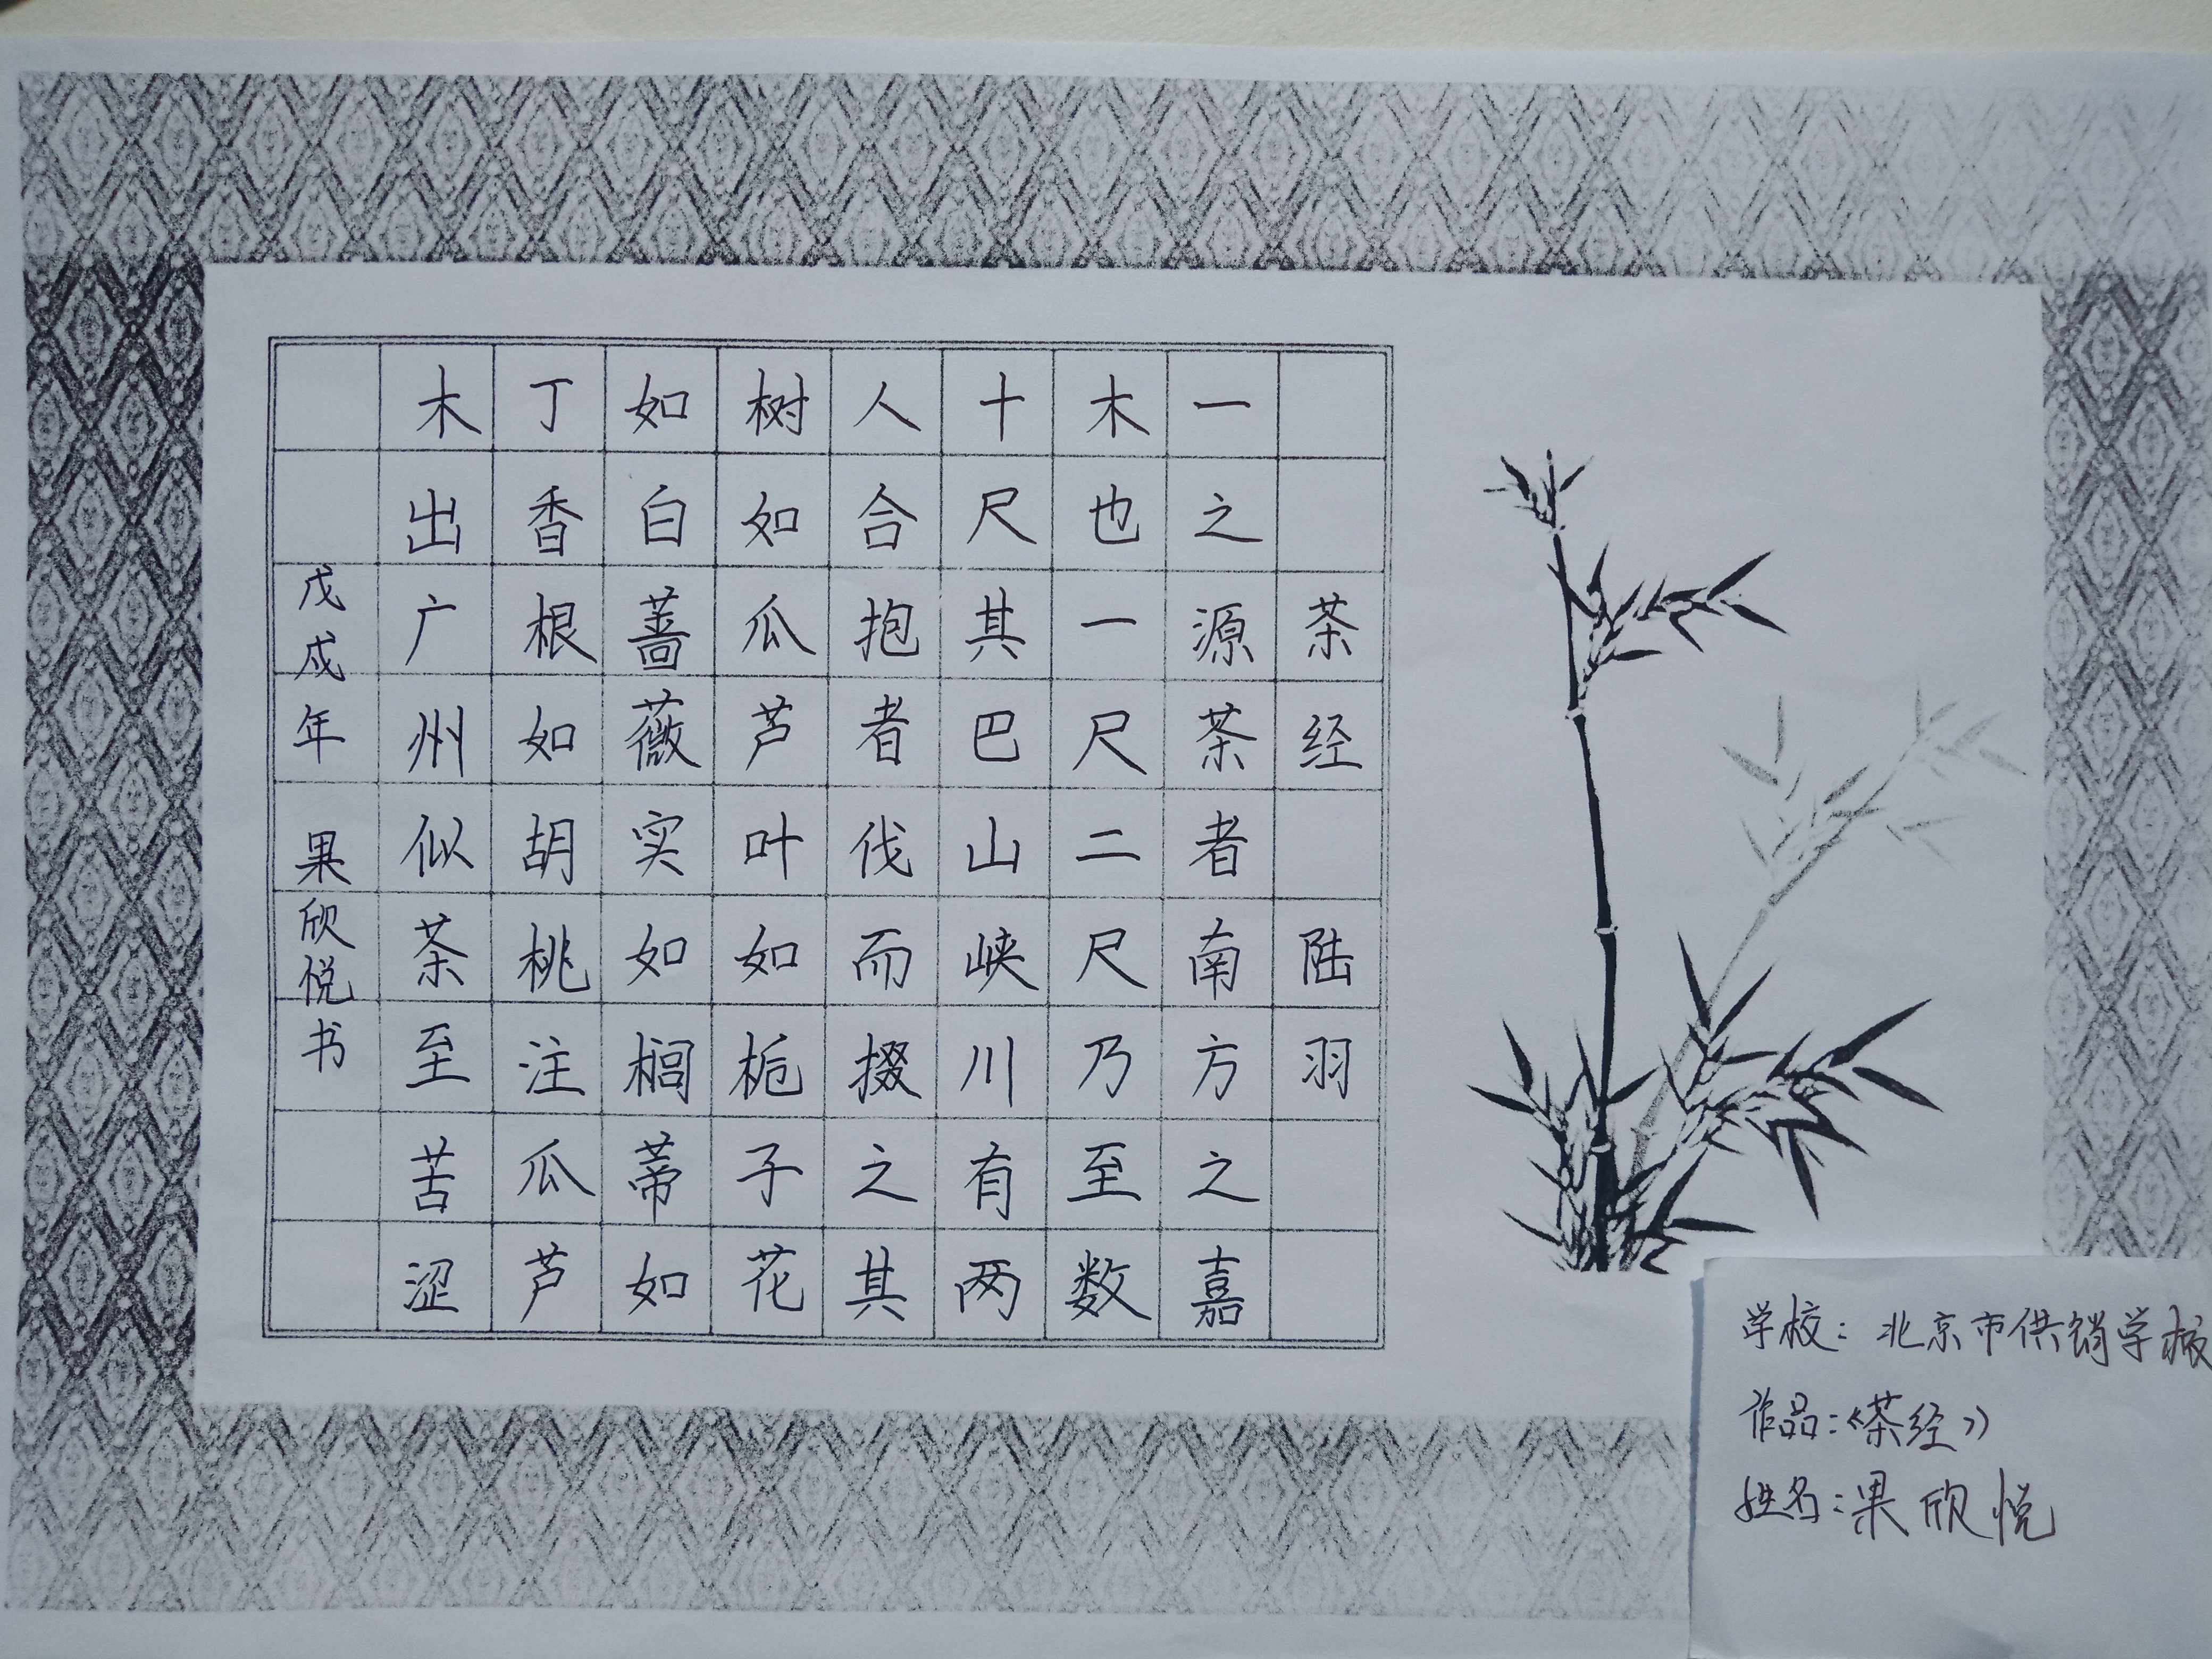 茶经 陆羽
一之源茶者南方之嘉
木也一尺二尺乃至数
十尺其巴山峡川有两
人合抱者伐而掇之其
树如瓜芦叶如栀子花
如白蔷薇实如榈蒂如
丁香根如胡桃注瓜芦
木出广州似茶至苦涩
戊戌年 果欣悦书
学校：北京市供销学校
作品：《茶经》
姓名：果欣悦